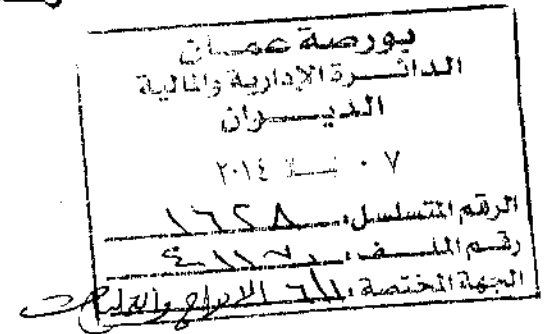 بورصة عمان
الدائرة الإدارية والمالية
الديوان
٠٧ ٢٠١٤
الرقم المتسلسل: ١٦٢٨
رقم الملف:
الجهة المختصة: الإدراج والعمليات